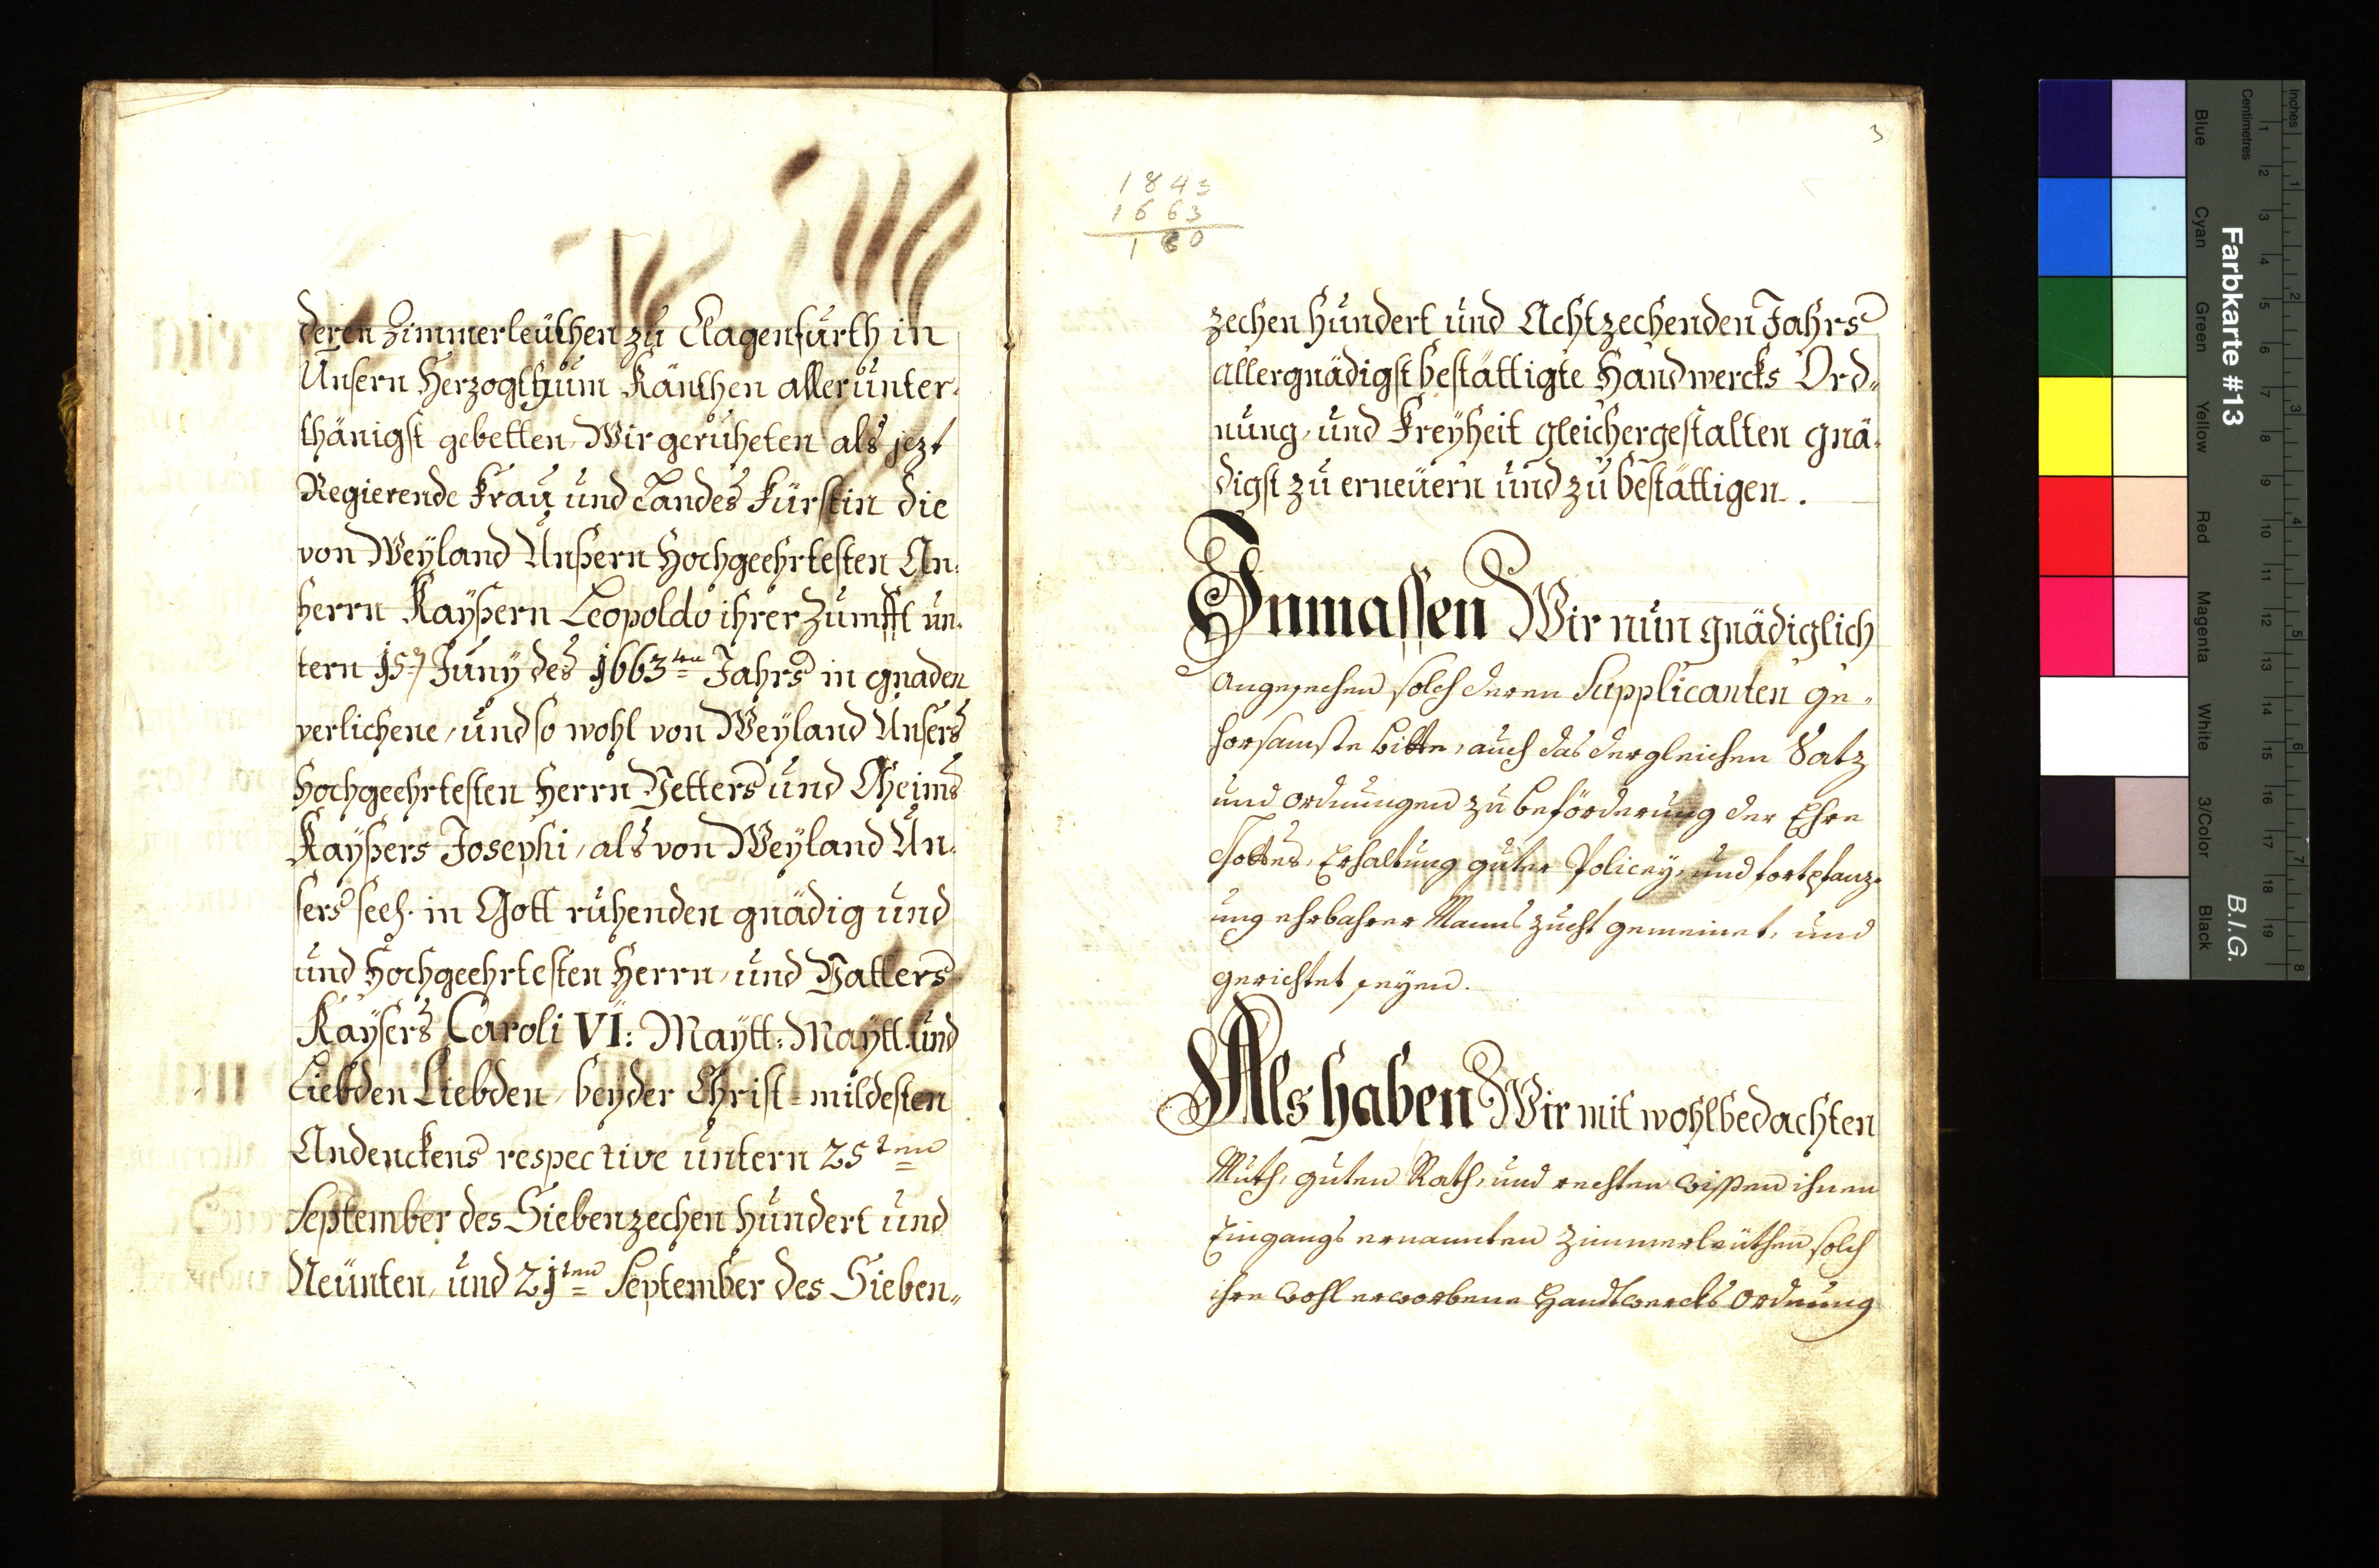 deren Zimmerleüthen zu Clagenfurth in
Unsern Herzogthum Känthen allerunter-
thänigst gebetten, Wir geruheten als jezt
Regierende Frau und Landes Fürstin die
von Weyland Unßern Hochgeehrtesten An-
herrn Kayßern Leopoldo ihrer Zumfft un-
tern 15. Juny des 1663ten Jahrs in gnaden
verlichene, und so wohl von Weyland Unsers
Hochgeehrtesten Herrn Vetters und Oheims
Kayßers Josephi, als von Weyland Un-
sers seel. in Gott ruhenden gnädig und
und Hochgeehrtesten Herrn, und Vatters
Kaysers Caroli VI: Maytt: Maytt. und
Liebden Liebden, beyder Christ-mildesten
Andenckens respective untern 25ten
September des Siebenzechen hundert und
Neünten, und 21ten September des Sieben„
3
1843
1663
180
zechen hundert und Achtzechenden Jahrs
allergnädigst bestättigte Handwercks Ord„
nung, und Freyheit gleichergestalten gnä-
digst zu erneüern und zu bestättigen.
Inmassen Wir nun gnädiglich
angesehen solch deren Supplicanten ge-
horsamste bitte, auch das dergleichen Satz
und ordnungen zu beförderung der Ehre
Gottes, Erhaltung guter Policey, und fortpflanz-
ung ehrbahrer Manns zucht gemeinet, und
gerichtet seyen.
Als haben Wir mit wohlbedachten
Muth, guten Rath, und rechten wißen ihnen
Eingangs ernannten Zimmerleüthen solch
ihre wohl erworbene Handtwercks ordnung
Farbkarte #13
B.I.G.
Inches
Centimetres
1 2 3 4 5 6 7 8
1 2 3 4 5 6 7 8 9 10 11 12 13 14 15 16 17 18 19
Blue
Cyan
Green
Yellow
Red
Magenta
White
3/Color
Black